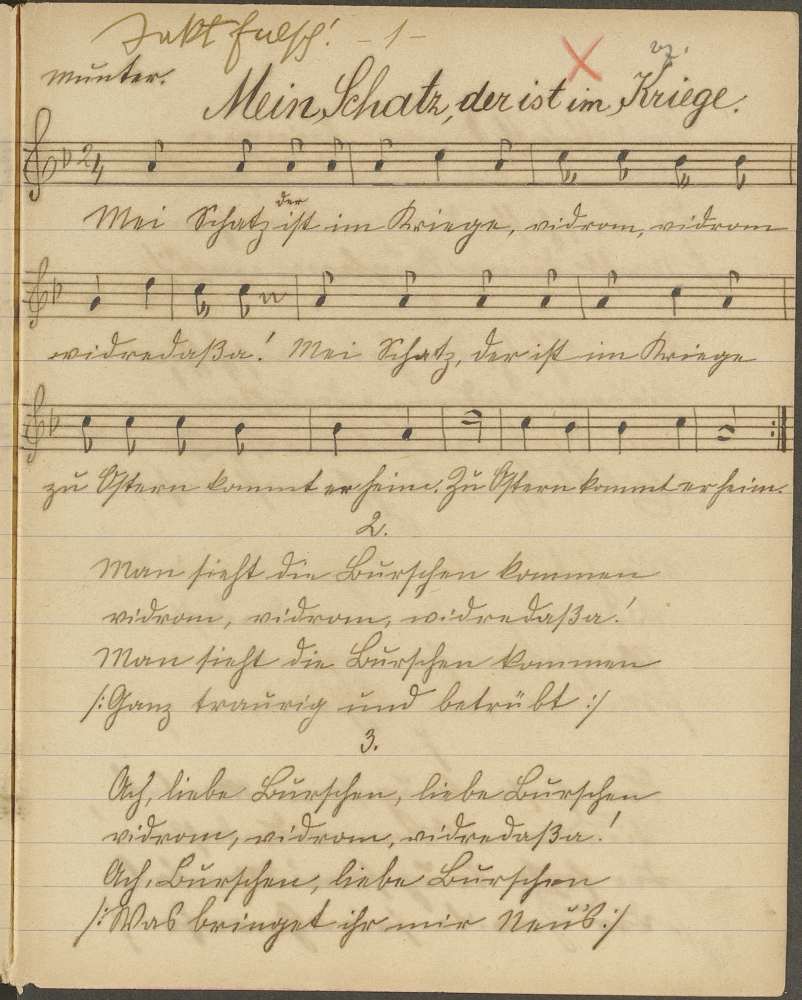 Takt falsch! - 1 -
munter.
Mein Schatz, der ist im Kriege.
2/4
Mei Schatz der ist im Kriege, vidrom, vidrom
widredaßa! Mei Schatz, der ist im Kriege
zu Ostern kommt er heim. Zu Ostern kommt er heim.
2.
Man sieht die Burschen kommen
vidrom, vidrom, widredaßa!
Man sieht die Burschen kommen
/: Ganz traurig und betrübt :/
3.
Ach, liebe Burschen, liebe Burschen
vidrom, vidrom, vidredaßa!
Ach, Burschen, liebe Burschen
/: Was bringet ihr mir Neu's :/